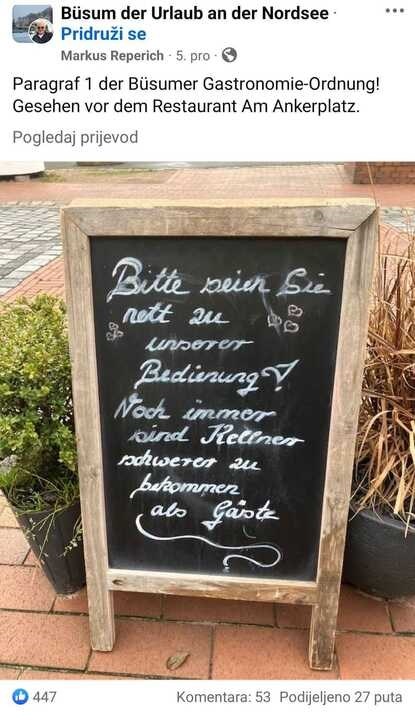 Büsum der Urlaub an der Nordsee ·
Pridruži se
Markus Reperich · 5. pro ·
Paragraf 1 der Büsumer Gastronomie-Ordnung!
Gesehen vor dem Restaurant Am Ankerplatz.
Pogledaj prijevod
Bitte seien Sie
nett zu
unserer
Bedienung!
Noch immer
sind Kellner
schwerer zu
bekommen
als Gäste
447
Komentara: 53 Podijeljeno 27 puta